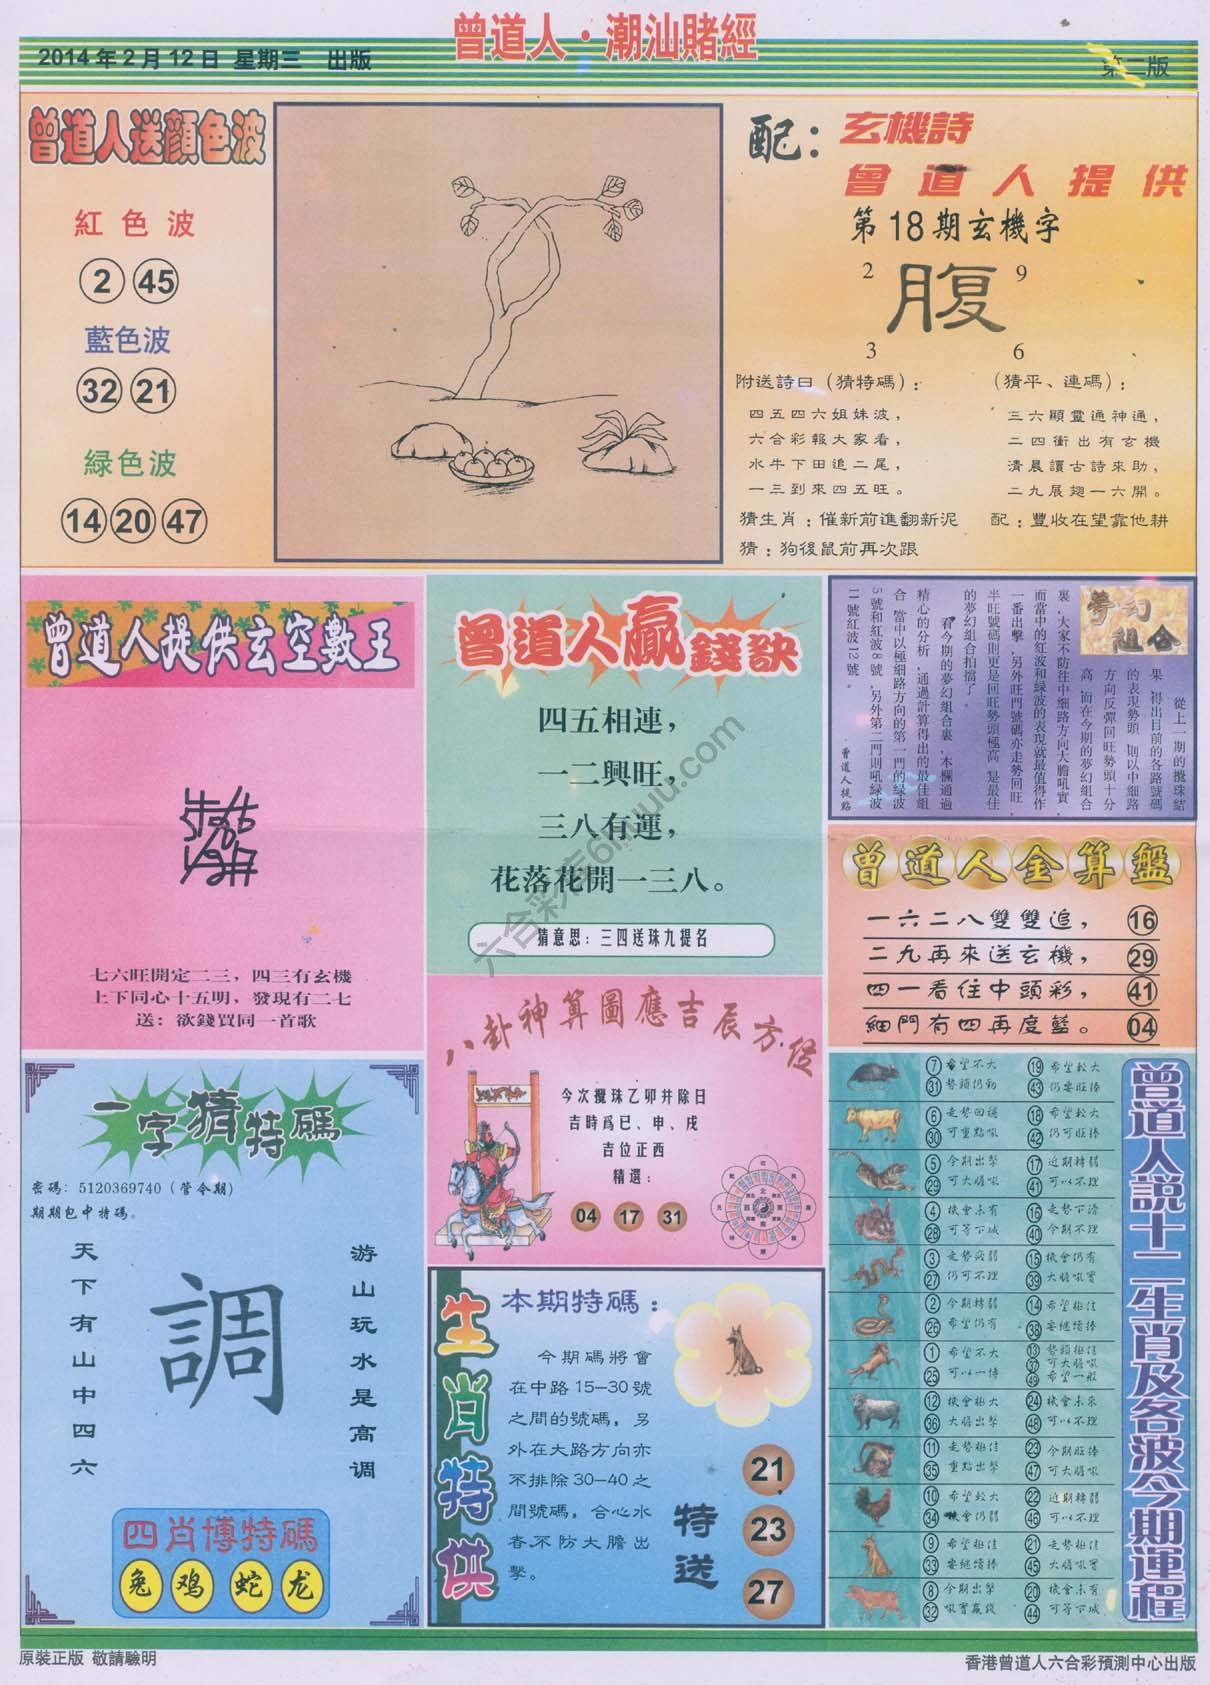 曾道人·潮汕賭經
2014年2月12日 星期三 出版
第二版
曾道人送顏色波
紅色波
2 45
藍色波
32 21
緑色波
14 20 47
配：玄機詩
曾道人提供
第18期玄機字
2 9
腹
3 6
附送詩曰（猜特碼）：
四五四六姐妹波，
六合彩報大家看，
水牛下田追二尾，
一三到來四五旺。
（猜平、連碼）：
三六顯靈通神通，
二四衝出有玄機
清晨讀古詩來助，
二九展翅一六開。
猜生肖：催新前進翻新泥
配：豐收在望靠他耕
猜：狗後鼠前再次跟
曾道人提供玄空數王
七六旺開定二三，四三有玄機
上下同心十五明，發現有二七
送：欲錢買同一首歌
曾道人贏錢訣
四五相連，
一二興旺，
三八有運，
花落花開一三八。
猜意思：三四送珠九提名
夢幻
組合
從上一期的攪珠結
果，得出目前的各路號碼
的表現勢頭，則以中細路
方向反彈回旺勢頭十分
高，而在今期的夢幻組合
裏，大家不防往中細路方向大膽吼實，
而當中的紅波和緑波的表現就最值得作
一番出擊，另外旺門號碼亦走勢回旺，
半旺號碼則更是回旺勢頭極高，是最佳
的夢幻組合拍擋了。
看今期的夢幻組合裏，本欄通過
精心的分析，通過計算得出的最佳組
合，當中以極細路方向的第一門的緑波
5號和紅波8號，另外第二門則吼緑波
11號紅波12號。
曾道人提點
曾道人金算盤
一六二八雙雙追， 16
二九再來送玄機， 29
四一看住中頭彩， 41
細門有四再度藍。 04
八卦神算圖應吉辰方位
今次攪珠乙卯井除日
吉時爲巳、申、戌
吉位正西
精選：
04 17 31
一字猜特碼
密碼：5120369740（管令期）
期期包中特碼。
天下有山中四六
調
游山玩水是高調
四肖博特碼
兔 鸡 蛇 龙
生肖特供
本期特碼：
今期碼將會
在中路15-30號
之間的號碼，另
外在大路方向亦
不排除30-40之
間號碼，合心水
者不防大膽出
擊。
特送
21
23
27
曾道人説十二生肖及各波今期運程
7 希望不大 19 希望較大
31 勢頭仍勁 43 仍要旺捧
6 走勢回穩 18 希望較大
30 可重點吼 42 仍可旺捧
5 今期出擊 17 近期轉弱
29 可大膽吼 41 可以不理
4 機會未有 16 走勢下滑
28 可等下城 40 今期不理
3 走勢疲弱 15 機會仍有
27 仍可不理 39 大膽吼實
2 今期轉弱 14 希望極佳
26 希望仍有 38 要繼續捧
1 希望不大 13 勢頭極佳
25 可以一博 37 可大膽吼
49 希望一般
12 機會極大 24 機會未來
36 大膽出擊 48 可以不理
11 走勢極佳 23 今期旺捧
35 重點出擊 47 可大膽吼
10 希望較大 22 近期轉弱
34 機會仍弱 46 可以不理
9 希望仍有 21 走勢極佳
33 要繼續捧 45 大膽吼實
8 今期出擊 20 機會未有
32 吼實贏錢 44 可等下城
原裝正版 敬請驗明
香港曾道人六合彩預測中心出版